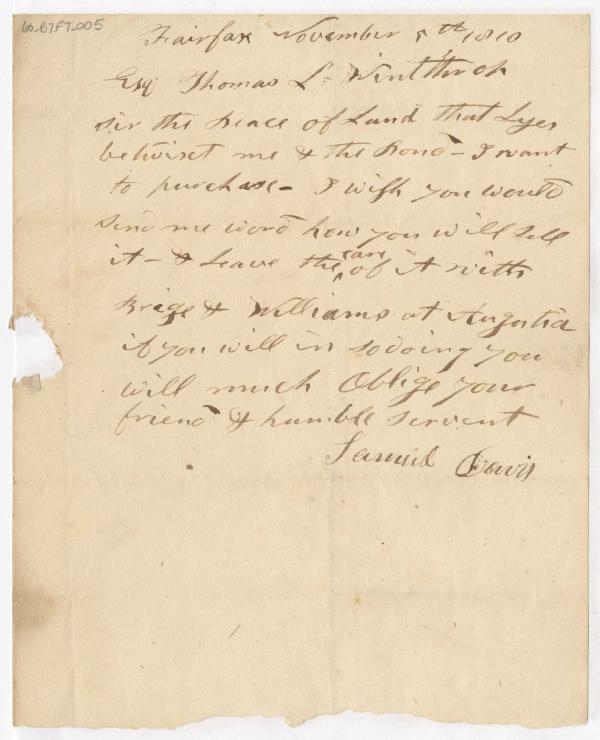 60.B7F7.005
Fairfax November 5th 1810
Esq Thomas L. Winthrop
sir the peace of Land that Lyes
betwixt me & the Pond - I want
to purchase - I wish you would
send me word how you will sell
it - & Leave the care of it with
Brige & Williams at Augusta
if you will in sodoing you
will much Oblige your
friend & humble servant
Samuel Davis